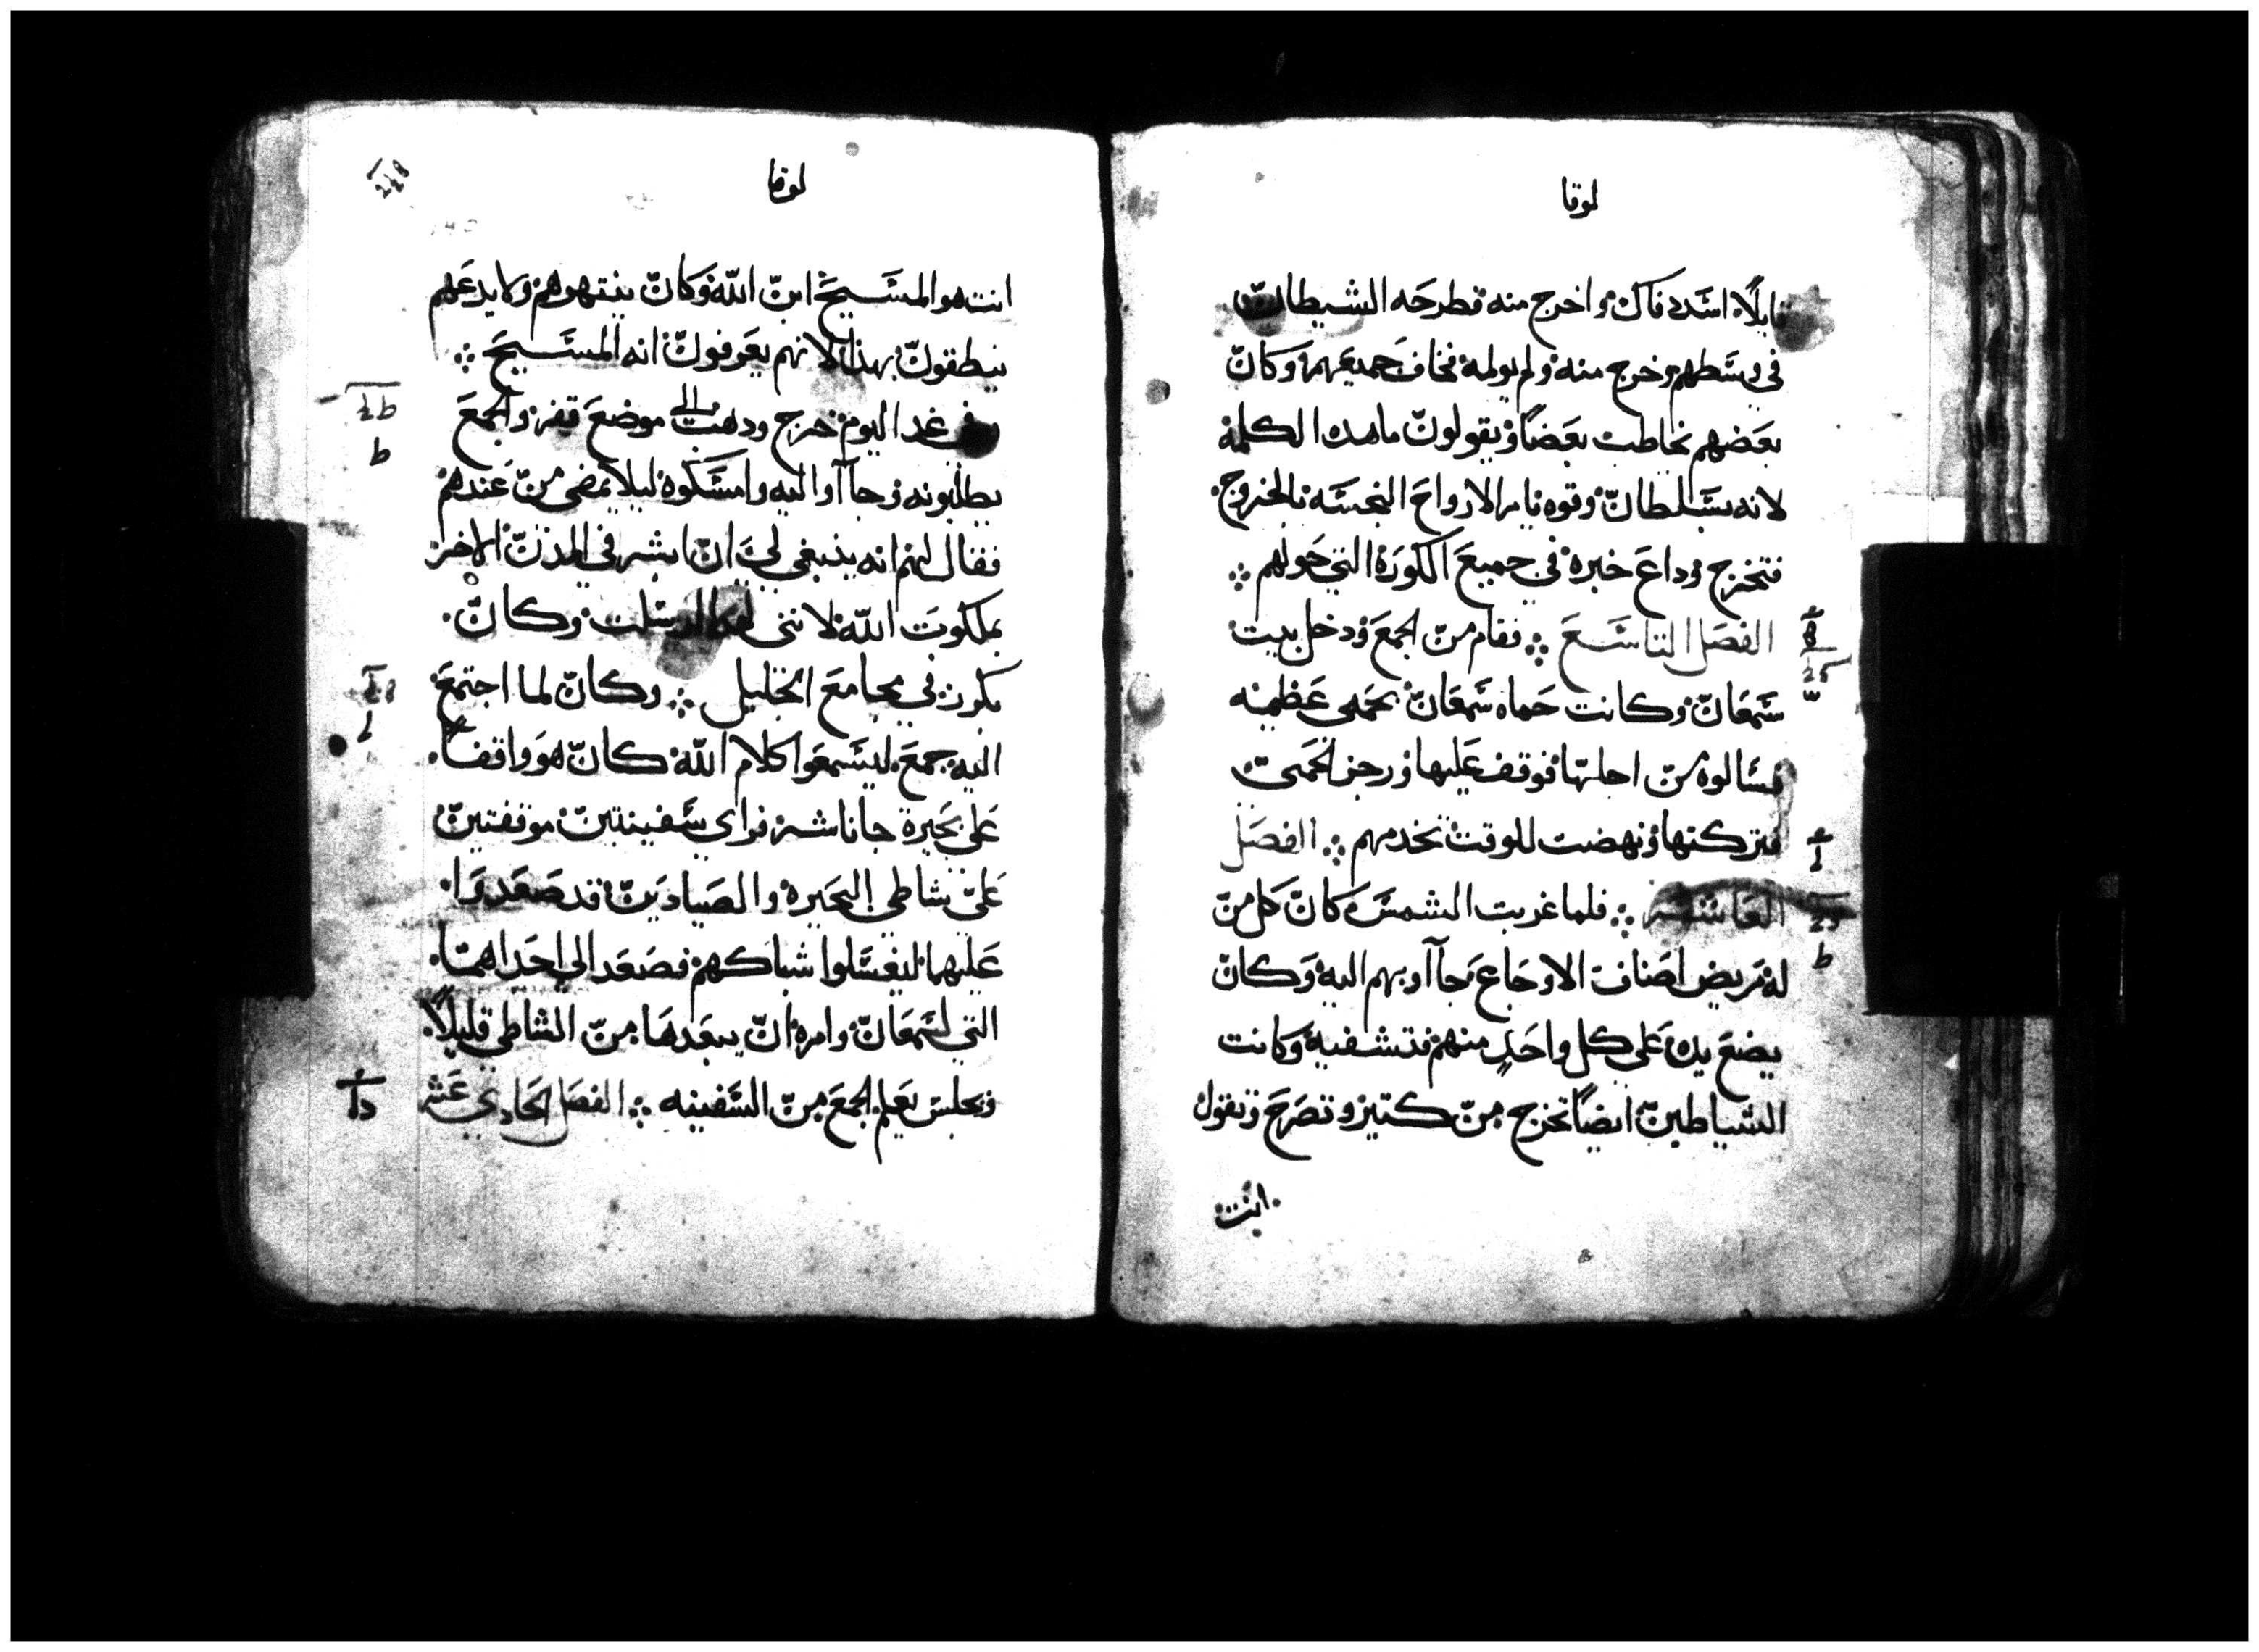 لوقا
قايلًا اسدد فاك واخرج منه فطرحه الشيطان
في وسطهم وخرج منه ولم يولمه فخاف جميعهم وكان
بعضهم يخاطب بعضًا ويقولون ما هده الكلمة
لانه بسلطان وقوه يامر الارواح النجسه بالخروج
فتخرج وداع خبره في جميع الكورة التي حولهم
الفصل التاسع فقام من الجمع ودخل بيت
سمعان وكانت حماه سمعان بحمى عظيمه
فسالوه من اجلها فوقف عليها وزجر الحمى
فتركتها ونهضت للوقت تخدمهم الفصل
العاشر فلما غربت الشمس كان كل من
له مريض اصناف الاوجاع جآاو بهم اليه وكان
يضع يده على كل واحد منهم فتشفيه وكانت
الشياطين ايضًا تخرج من كتير وتصرخ وتقول
انت
لوقا
انت هو المسيح ابن الله وكان ينتهرهم ولا يدعهم
ينطقون بهذا لانهم يعرفون انه المسيح
وفي غد اليوم خرج ودهب الى موضع قفر والجمع
يطلبونه وجآاو اليه وامسكوه ليلا يمضي من عندهم
فقال لهم انه ينبغي لي ان ابشر في المدن الاخر
بملكوت الله لانني لهدا ارسلت وكان
يكرز في مجامع الجليل وكان لما اجتمع
اليه جمع ليسمعوا كلام الله كان هو واقفًا
على بحيرة جاناشر فراي سفينتين موقفتين
على شاطي البحيره والصيادين قد صعدوا
عليهما ليغسلوا شباكهم فصعد الي احداهما
التي لسمعان وامره ان يبعدها من الشاطي قليلًا
وجلس يعلم الجمع من السفينه الفصل الحادي عشر